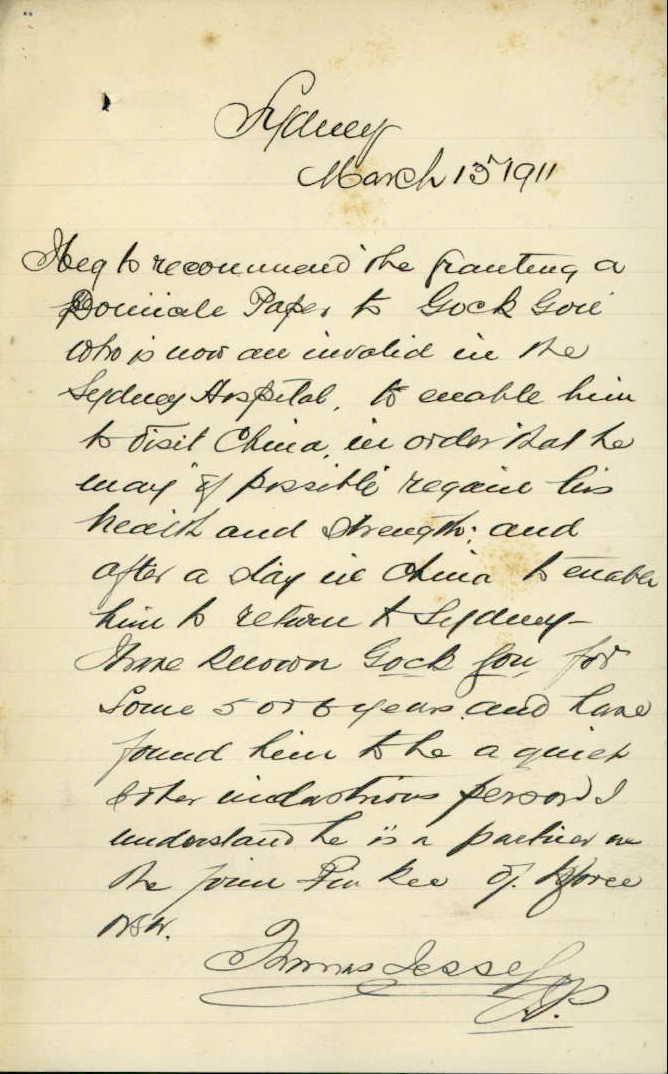 Sydney
March 13th 1911
I beg to recommend the granting a
Domicile Paper to Gock Gou
who is now an invalid in the
Sydney Hospital, to enable him
to visit China, in order that he
may if possible regain his
health and strength; and
after a stay in China to enable
him to return to Sydney—
I have known Gock Gou, for
some 5 or 6 years and have
found him to be a quiet
sober industrious person I
understand he is a partner in
the firm kee of
NSW.
Thomas Jesse
JP.